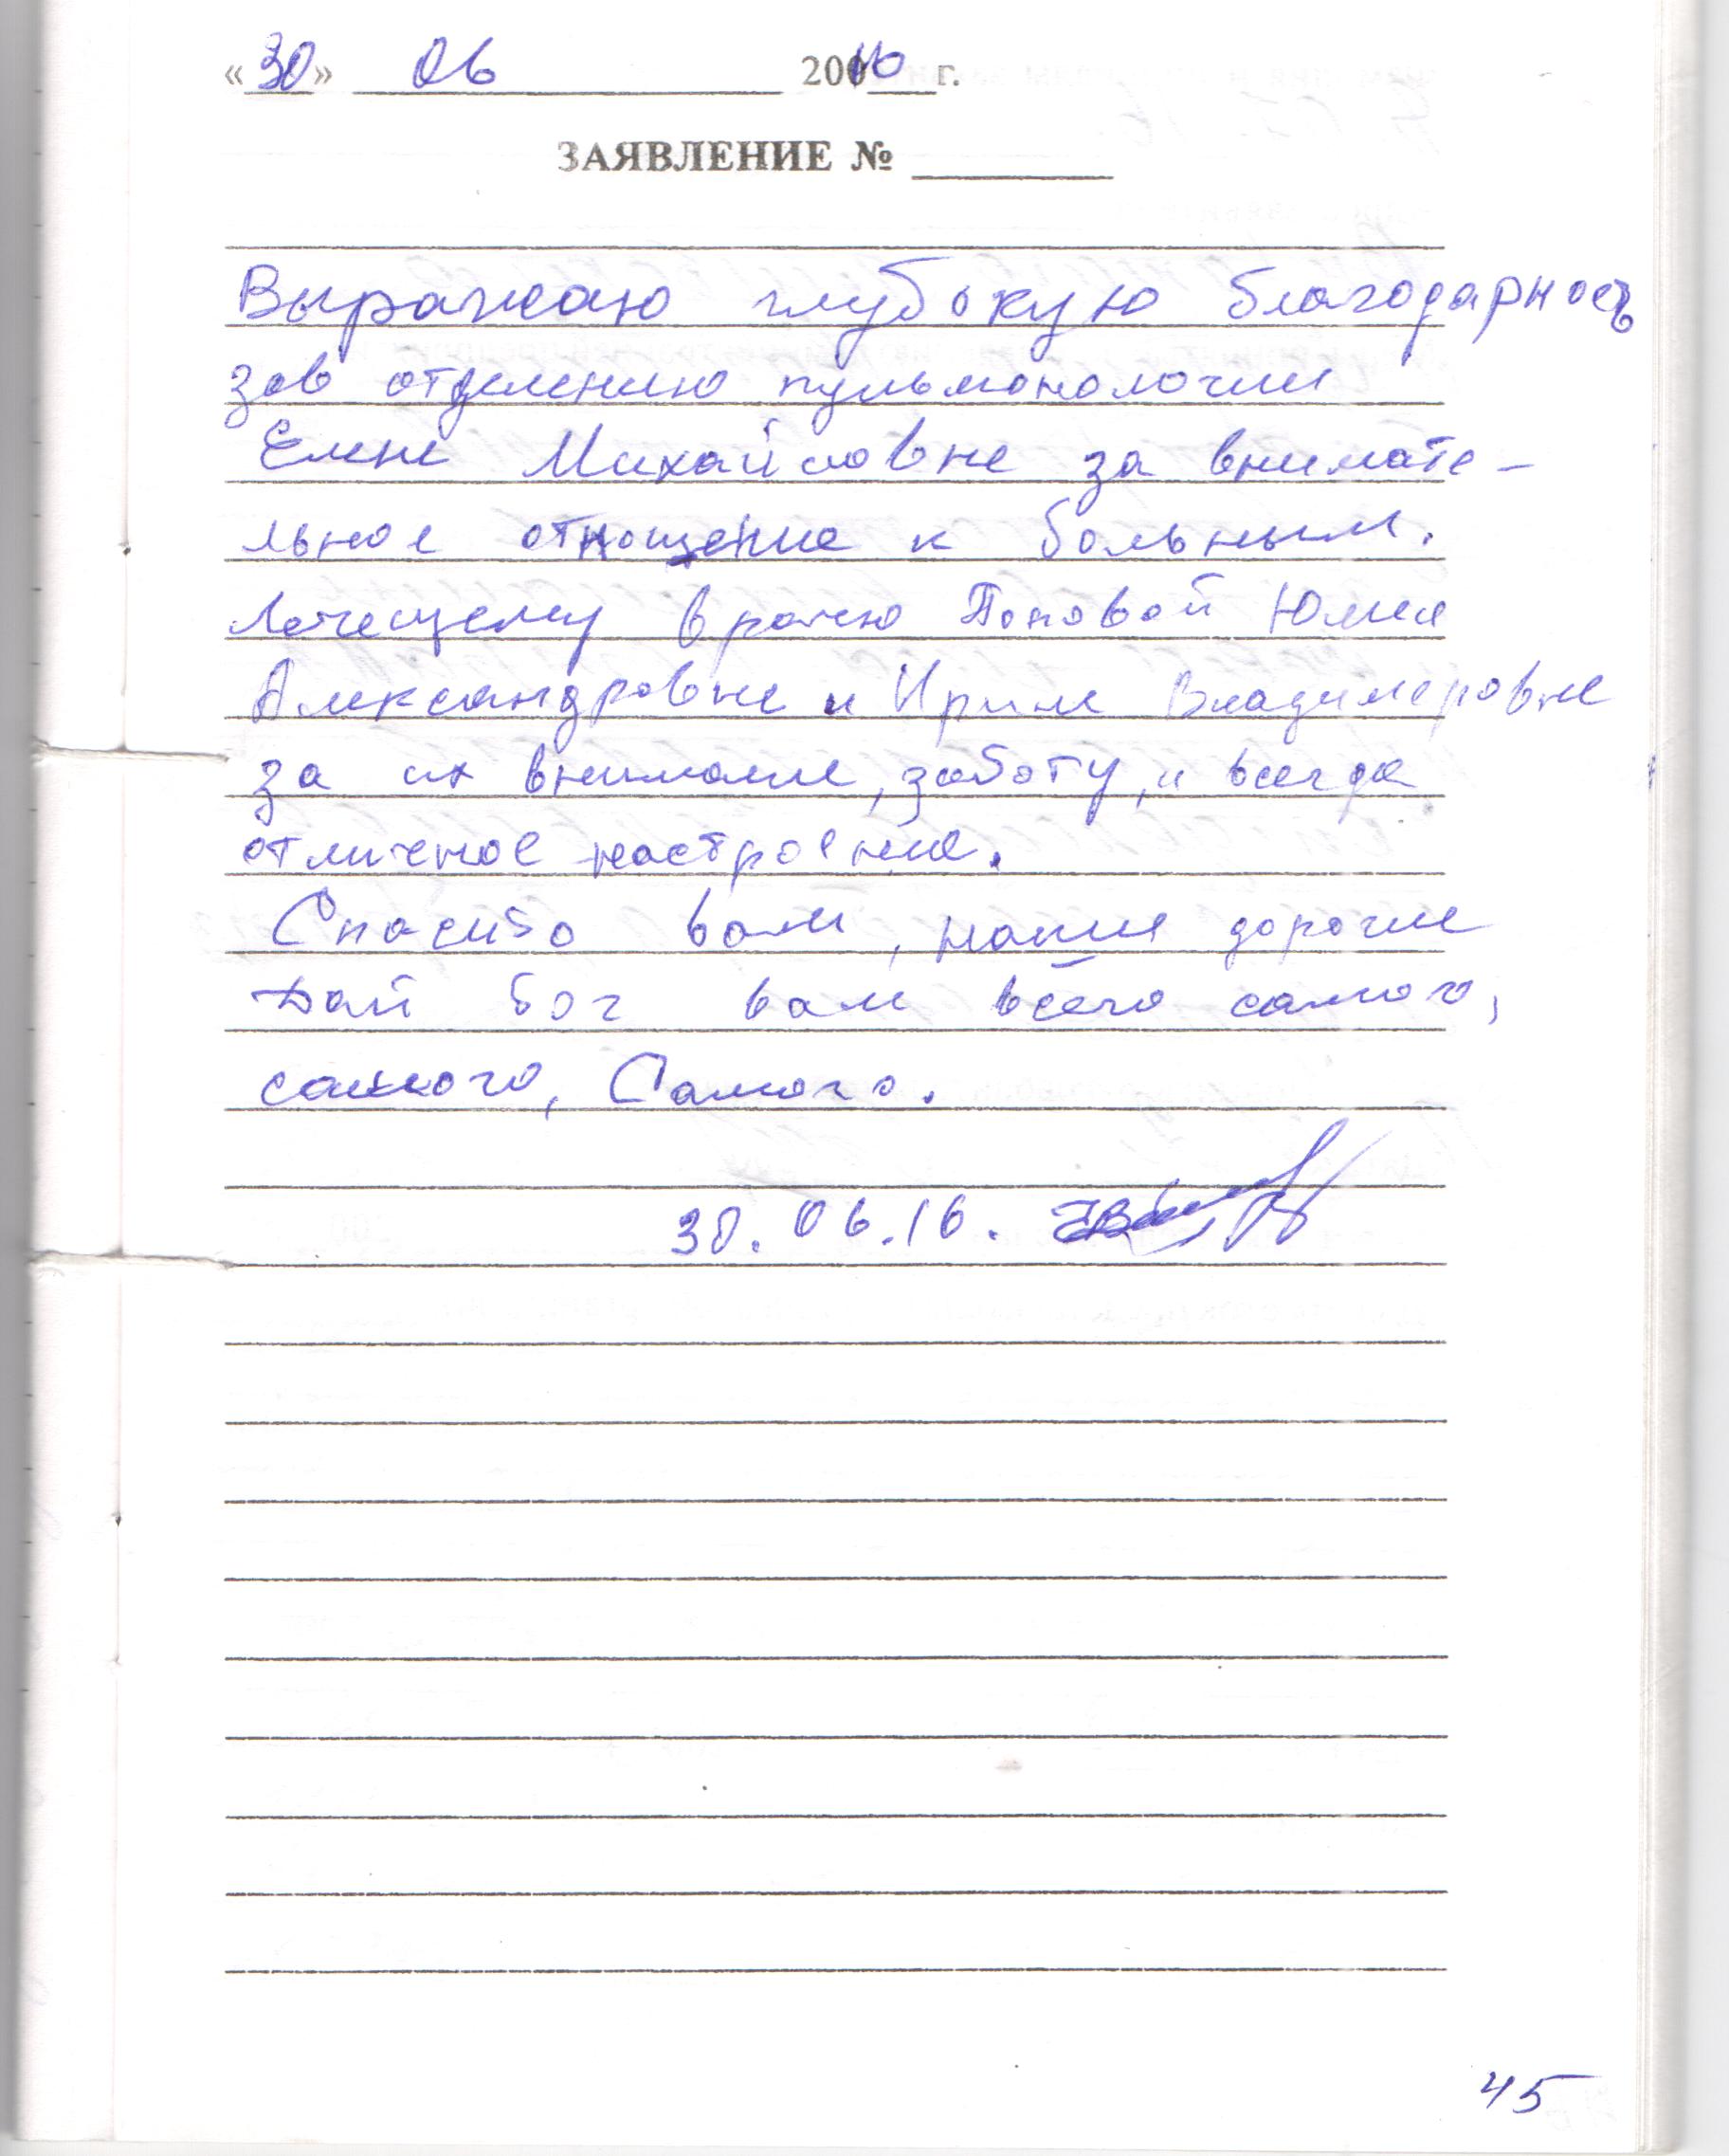 «30» 06 20016 г.
ЗАЯВЛЕНИЕ №
Выражаю глубокую благодарность
зав отделению пульмонологии
Елене Михайловне за внимате-
льное отношение к больным.
Лечещему врачю Поповой Юлия
Александровне и Ирине Владимеровне
за их внимание, заботу, и всегда
отличное настроение.
Спасибо вам, наши дорогие
Дай бог вам всего самого,
самого, Самого.
30.06.16.
45